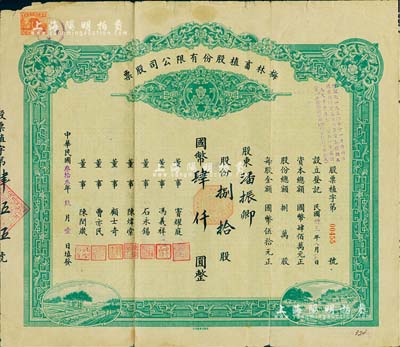 上海陽明拍賣
梅林畜植股份有限公司股票
股票植字第 00455 號
設立登記 民國
資本總額 國幣肆佰萬元正
股份總額 捌萬股
每股金額 國幣伍拾元正
股東 潘振卿
股份 捌拾股
國幣 肆仟圓整
董事 竇耀庭
董事 馮義祥
董事 石永錫
董事 陳煒堂
董事 顧士奇
董事 曹亦民
董事 陳閏崴
中華民國 年 月 壹日填發
股票植字第 肆五五號